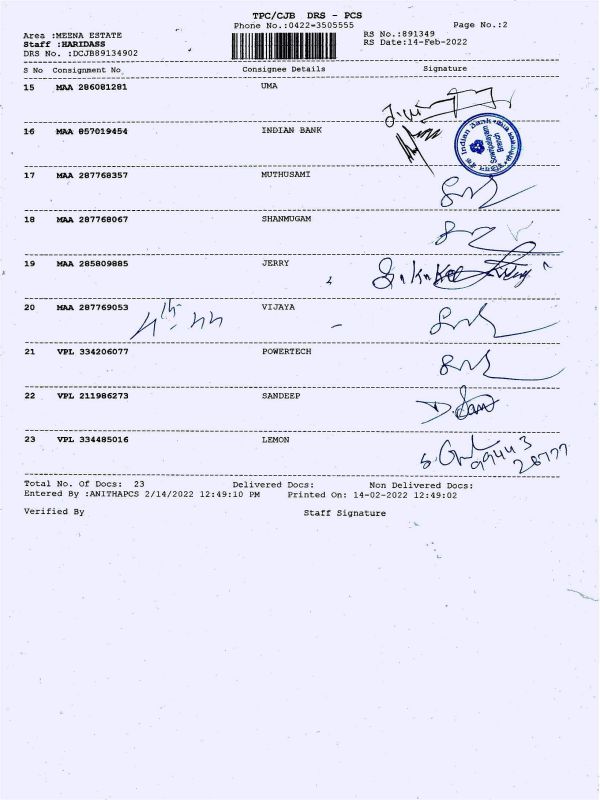 TPC/CJB DRS - PCS
Phone No.:0422-3505555
Page No.:2
Area :MEENA ESTATE
RS No.:891349
Staff :HARIDASS
RS Date:14-Feb-2022
DRS No. :DCJB89134902
S No Consignment No Consignee Details Signature
15 MAA 286081281 UMA
16 MAA 857019454 INDIAN BANK
Indian Bank
17 MAA 287768357 MUTHUSAMI
18 MAA 287768067 SHANMUGAM
19 MAA 285809885 JERRY
20 MAA 287769053 VIJAYA
21 VPL 334206077 POWERTECH
22 VPL 211986273 SANDEEP
23 VPL 334485016 LEMON
99443
28777
Total No. Of Docs: 23 Delivered Docs: Non Delivered Docs:
Entered By :ANITHAPCS 2/14/2022 12:49:10 PM Printed On: 14-02-2022 12:49:02
Verified By Staff Signature